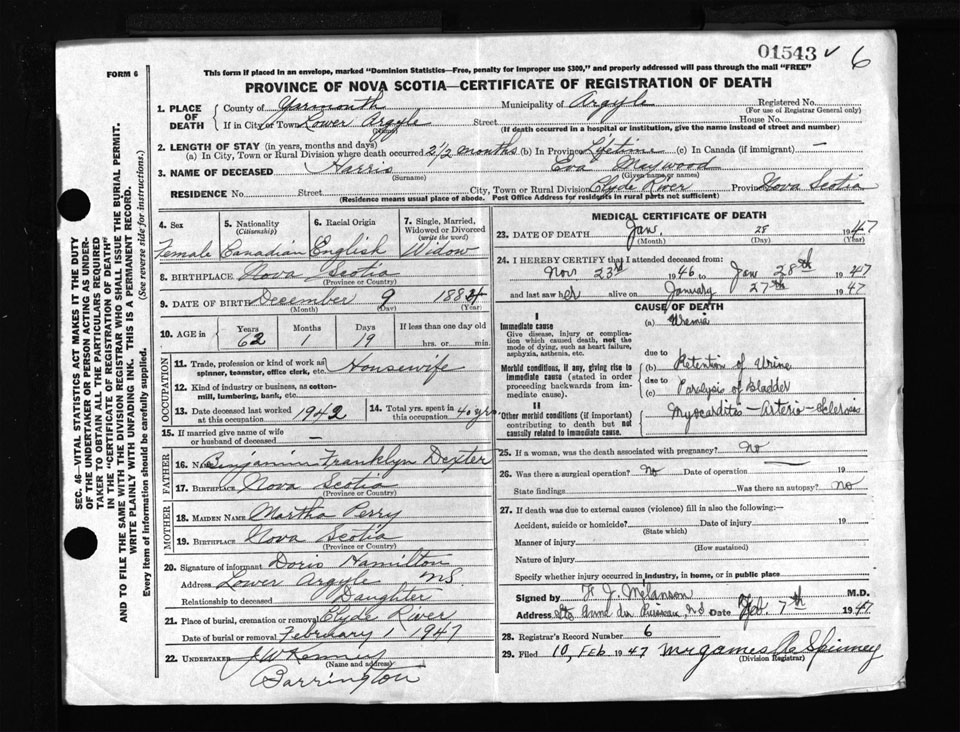 01543 6
FORM 6
This form if placed in an envelope, marked "Dominion Statistics—Free, penalty for improper use $300," and properly addressed will pass through the mail "FREE"
PROVINCE OF NOVA SCOTIA—CERTIFICATE OF REGISTRATION OF DEATH
1. PLACE OF DEATH County of Yarmouth Municipality of Argyle Registered No.
(For use of Registrar General only)
If in City or Town Lower Argyle Street House No.
(Name) (If death occurred in a hospital or institution, give the name instead of street and number)
2. LENGTH OF STAY (in years, months and days)
(a) In City, Town or Rural Division where death occurred 2 1/2 months (b) In Province Lifetime (c) In Canada (if immigrant) —
3. NAME OF DECEASED Harris Eva Maywood
(Surname) (Given name or names)
RESIDENCE No. Street City, Town or Rural Division Clyde River Province Nova Scotia
(Residence means usual place of abode. Post Office Address for residents in rural parts not sufficient)
4. Sex Female
5. Nationality (Citizenship) Canadian
6. Racial Origin English
7. Single, Married, Widowed or Divorced (write the word) Widow
8. BIRTHPLACE Nova Scotia
(Province or Country)
9. DATE OF BIRTH December 9 1884
(Month) (Day) (Year)
10. AGE in Years 62 Months 1 Days 19 If less than one day old hrs. or min.
OCCUPATION
11. Trade, profession or kind of work as spinner, teamster, office clerk, etc. Housewife
12. Kind of industry or business, as cotton-mill, lumbering, bank, etc.
13. Date deceased last worked at this occupation 1942
14. Total yrs. spent in this occupation 40 yrs
15. If married give name of wife or husband of deceased —
FATHER
16. Name Benjamin Franklyn Dexter
17. Birthplace Nova Scotia
(Province or Country)
MOTHER
18. MAIDEN NAME Martha Perry
19. BIRTHPLACE Nova Scotia
(Province or Country)
20. Signature of informant Doris Hamilton
Address Lower Argyle NS
Relationship to deceased Daughter
21. Place of burial, cremation or removal Clyde River
Date of burial or removal February 1 1947
22. UNDERTAKER J W Kenney
(Name and address)
Barrington
MEDICAL CERTIFICATE OF DEATH
23. DATE OF DEATH Jan. 28 1947
(Month) (Day) (Year)
24. I HEREBY CERTIFY that I attended deceased from:
Nov 23rd 1946 to Jan 28th 1947
and last saw her alive on January 27th 1947
CAUSE OF DEATH
I
Immediate cause
Give disease, injury or complication which caused death, not the mode of dying, such as heart failure, asphyxia, asthenia, etc.
(a) Uremia
due to
Morbid conditions, if any, giving rise to immediate cause (stated in order proceeding backwards from immediate cause).
(b) Retention of Urine
due to
(c) Paralysis of Bladder
II
Other morbid conditions (if important) contributing to death but not causally related to immediate cause.
Myocarditis — Arterio — Sclerosis
25. If a woman, was the death associated with pregnancy? no
26. Was there a surgical operation? no Date of operation 19
State findings Was there an autopsy? no
27. If death was due to external causes (violence) fill in also the following:—
Accident, suicide or homicide? Date of injury 19
(State which)
Manner of injury
(How sustained)
Nature of injury
Specify whether injury occurred in industry, in home, or in public place
Signed by J. Melanson M.D.
Address Ste Anne du Ruisseau, N.S. Date Feb 7th 1947
28. Registrar's Record Number 6
29. Filed 10, Feb 1947 Mrs James Spinney
(Division Registrar)
SEC. 46—VITAL STATISTICS ACT MAKES IT THE DUTY
OF THE UNDERTAKER OR PERSON ACTING AS UNDER-
TAKER TO OBTAIN ALL THE PARTICULARS REQUIRED
IN THE "CERTIFICATE OF REGISTRATION OF DEATH"
AND TO FILE THE SAME WITH THE DIVISION REGISTRAR WHO SHALL ISSUE THE BURIAL PERMIT.
WRITE PLAINLY WITH UNFADING INK. THIS IS A PERMANENT RECORD.
Every item of information should be carefully supplied. (See reverse side for instructions.)